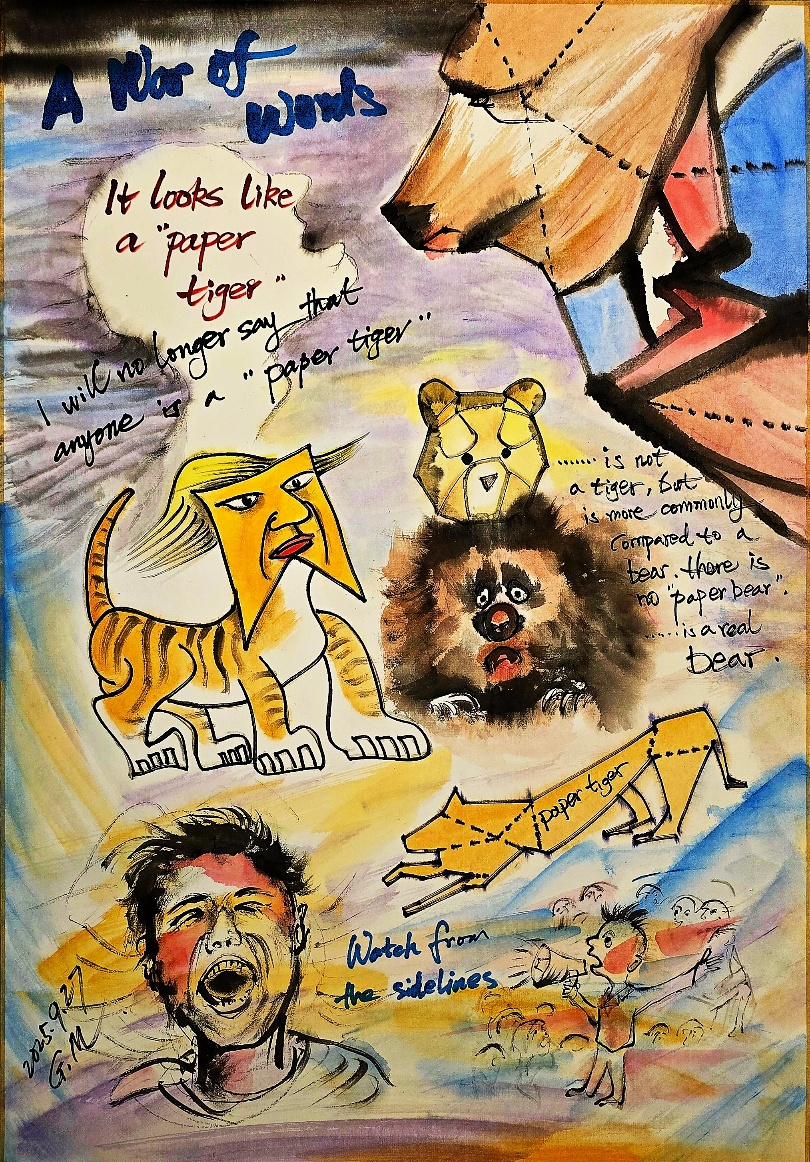 A War of
Words
It looks like
a "paper
tiger"
I will no longer say that
anyone is a "paper tiger"
....... is not
a tiger, but
is more commonly
compared to a
bear. there is
no "paper bear".
...... is a real
bear.
paper tiger
Watch from
the sidelines
2025.9.27
G.M